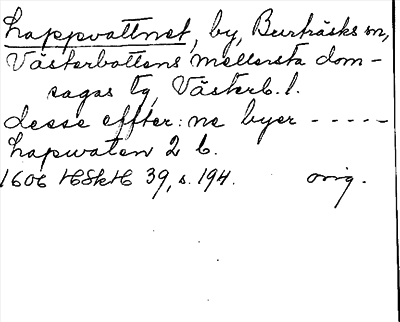 Lappvattnet, by, Burträsks sn,
Västerbottens mellersta dom-
sagas tg, Västerb. l.
desse effter: ne byer -----
Lapwaten 2 b.
1606 HSkH 39, s. 194. orig.